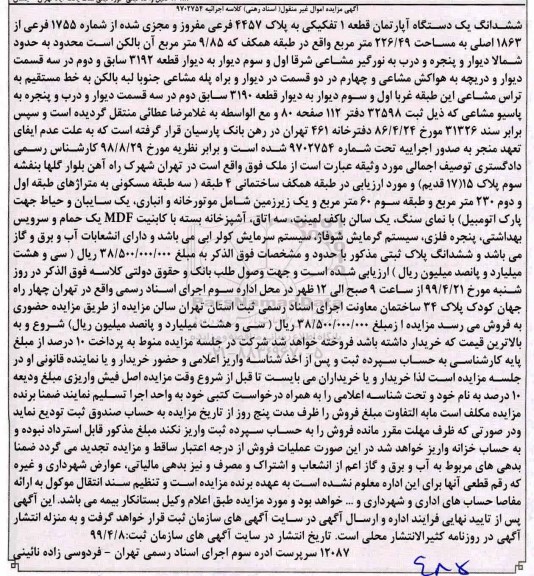 آگهی مزایده اموال غیر منقول (اسناد رهنی) کلاسه اجرائیه ۹۷۰۲۷۵۴
ششدانگ یک دستگاه آپارتمان قطعه ۱ تفکیکی به پلاک ۴۴۵۷ فرعی مفروز و مجزی شده از شماره ۱۷۵۵ فرعی از
۱۸۶۳ اصلی به مساحت ۲۲۶/۴۹ متر مربع واقع در طبقه همکف که ۹/۸۵ متر مربع آن بالکن است محدود به حدود
شمالا دیوار و پنجره و درب به نورگیر مشاعی شرقا اول و سوم دیوار به دیوار قطعه ۳۱۹۲ سابق و دوم در سه قسمت
دیوار و دریچه به هواکش مشاعی و چهارم در دو قسمت در دیوار و براه پله مشاعی جنوبا لبه بالکن به خط مستقیم به
تراس مشاعی این طبقه غربا اول و سوم دیوار به دیوار قطعه ۳۱۹۰ سابق دوم در سه قسمت دیوار و درب و پنجره به
پاسیو مشاعی که ذیل ثبت ۳۲۵۹۸ دفتر ۱۱۲ صفحه ۸۰ و مع الواسطه به غلامرضا عطائی منتقل گردیده است و سپس
برابر سند ۳۱۳۲۶ مورخ ۸۶/۴/۲۴ دفترخانه ۴۶۱ تهران در رهن بانک پارسیان قرار گرفته است که به علت عدم ایفای
تعهد منجر به صدور اجراییه تحت شماره ۹۷۰۲۷۵۴ شده است و برابر نظریه مورخ ۹۸/۸/۲۹ کارشناس رسمی
دادگستری توصیف اجمالی مورد وثیقه عبارت است از ملک فوق واقع است در تهران شهرک راه آهن بلوار گلها بنفشه
سوم پلاک ۱۵(۱۷ قدیم) و مورد ارزیابی در طبقه همکف ساختمانی ۴ طبقه ( سه طبقه مسکونی به متراژهای طبقه اول
و دوم ۲۳۰ متر مربع و طبقه سوم ۶۰ متر مربع و یک زیرزمین شامل موتورخانه و انباری، یک سایبان و حیاط جهت
پارک اتومبیل) با نمای سنگ، یک سالن باکف لمینت، سه اتاق، آشپزخانه بسته با کابنیت MDF یک حمام و سرویس
بهداشتی، پنجره فلزی، سیستم گرمایش شوفاژ، سیستم سرمایش کولر ابی می باشد و دارای انشعابات آب و برق و گاز
می باشد و ششدانگ پلاک ثبتی مذکور با حدود و مشخصات فوق الذکر به مبلغ ۳۸/۵۰۰/۰۰۰/۰۰۰ ریال ( سی و هشت
میلیارد و پانصد میلیون ریال ) ارزیابی شده است و جهت وصول طلب بانک و حقوق دولتی کلاسه فوق الذکر در روز
شنبه مورخ ۹۹/۴/۲۱ از ساعت ۹ صبح الی ۱۲ ظهر در محل اداره سوم اجرای اسناد رسمی واقع در تهران چهار راه
جهان کودک پلاک ۳۴ ساختمان معاونت اجرای اسناد رسمی ثبت استان تهران سالن مزایده از طریق مزایده حضوری
به فروش می رسد مزایده از مبلغ ۳۸/۵۰۰/۰۰۰/۰۰۰ ریال ( سی و هشت میلیارد و پانصد میلیون ریال) شروع و به
بالاترین قیمت که خریدار داشته باشد فروخته خواهد شد شرکت در جلسه مزایده منوط به پرداخت ۱۰ درصد از مبلغ
پایه کارشناسی به حساب سپرده ثبت و پس از اخذ شناسه واریز اعلامی و حضور خریدار و یا نماینده قانونی او در
جلسه مزایده است لذا خریدار و یا خریداران می بایست تا قبل از شروع وقت مزایده اصل فیش واریزی مبلغ ودیعه
۱۰ درصد به نام خود و تحت شناسه اعلامی را به همراه درخواست کتبی خود به واحد اجرا تسلیم نمایند ضمنا برنده
مزایده مکلف است مابه التفاوت مبلغ فروش را ظرف مدت پنج روز از تاریخ مزایده به حساب صندوق ثبت تودیع نماید
ودر صورتی که ظرف مهلت مقرر مانده فروش را به حساب سپرده ثبت واریز نکند مبلغ مذکور قابل استرداد نبوده و
به حساب خزانه واریز خواهد شد در این صورت عملیات فروش از درجه اعتبار ساقط و مزایده تجدید می گردد ضمنا
بدهی های مربوط به آب و برق و گاز اعم از انشعاب و اشتراک و مصرف و نیز بدهی مالیاتی، عوارض شهرداری و غیره
که رقم قطعی آنها برای این اداره معلوم نشده است به عهده برنده مزایده است و تنظیم سند انتقال موکول به ارائه
مفاصا حساب های اداری و شهرداری و ... خواهد بود و مورد مزایده طبق اعلام وکیل بستانکار بیمه می باشد. این آگهی
پس از تایید نهایی فرایند اداره و ارسال آگهی در سایت آگهی های سازمان ثبت قرار خواهد گرفت و به منزله انتشار
آگهی در روزنامه کثیرالانتشار محلی است. تاریخ انتشار در سایت آگهی های سازمان ثبت:۹۹/۴/۸
۱۲۰۸۷ سرپرست ادره سوم اجرای اسناد رسمی تهران - فردوسی زاده نائینی